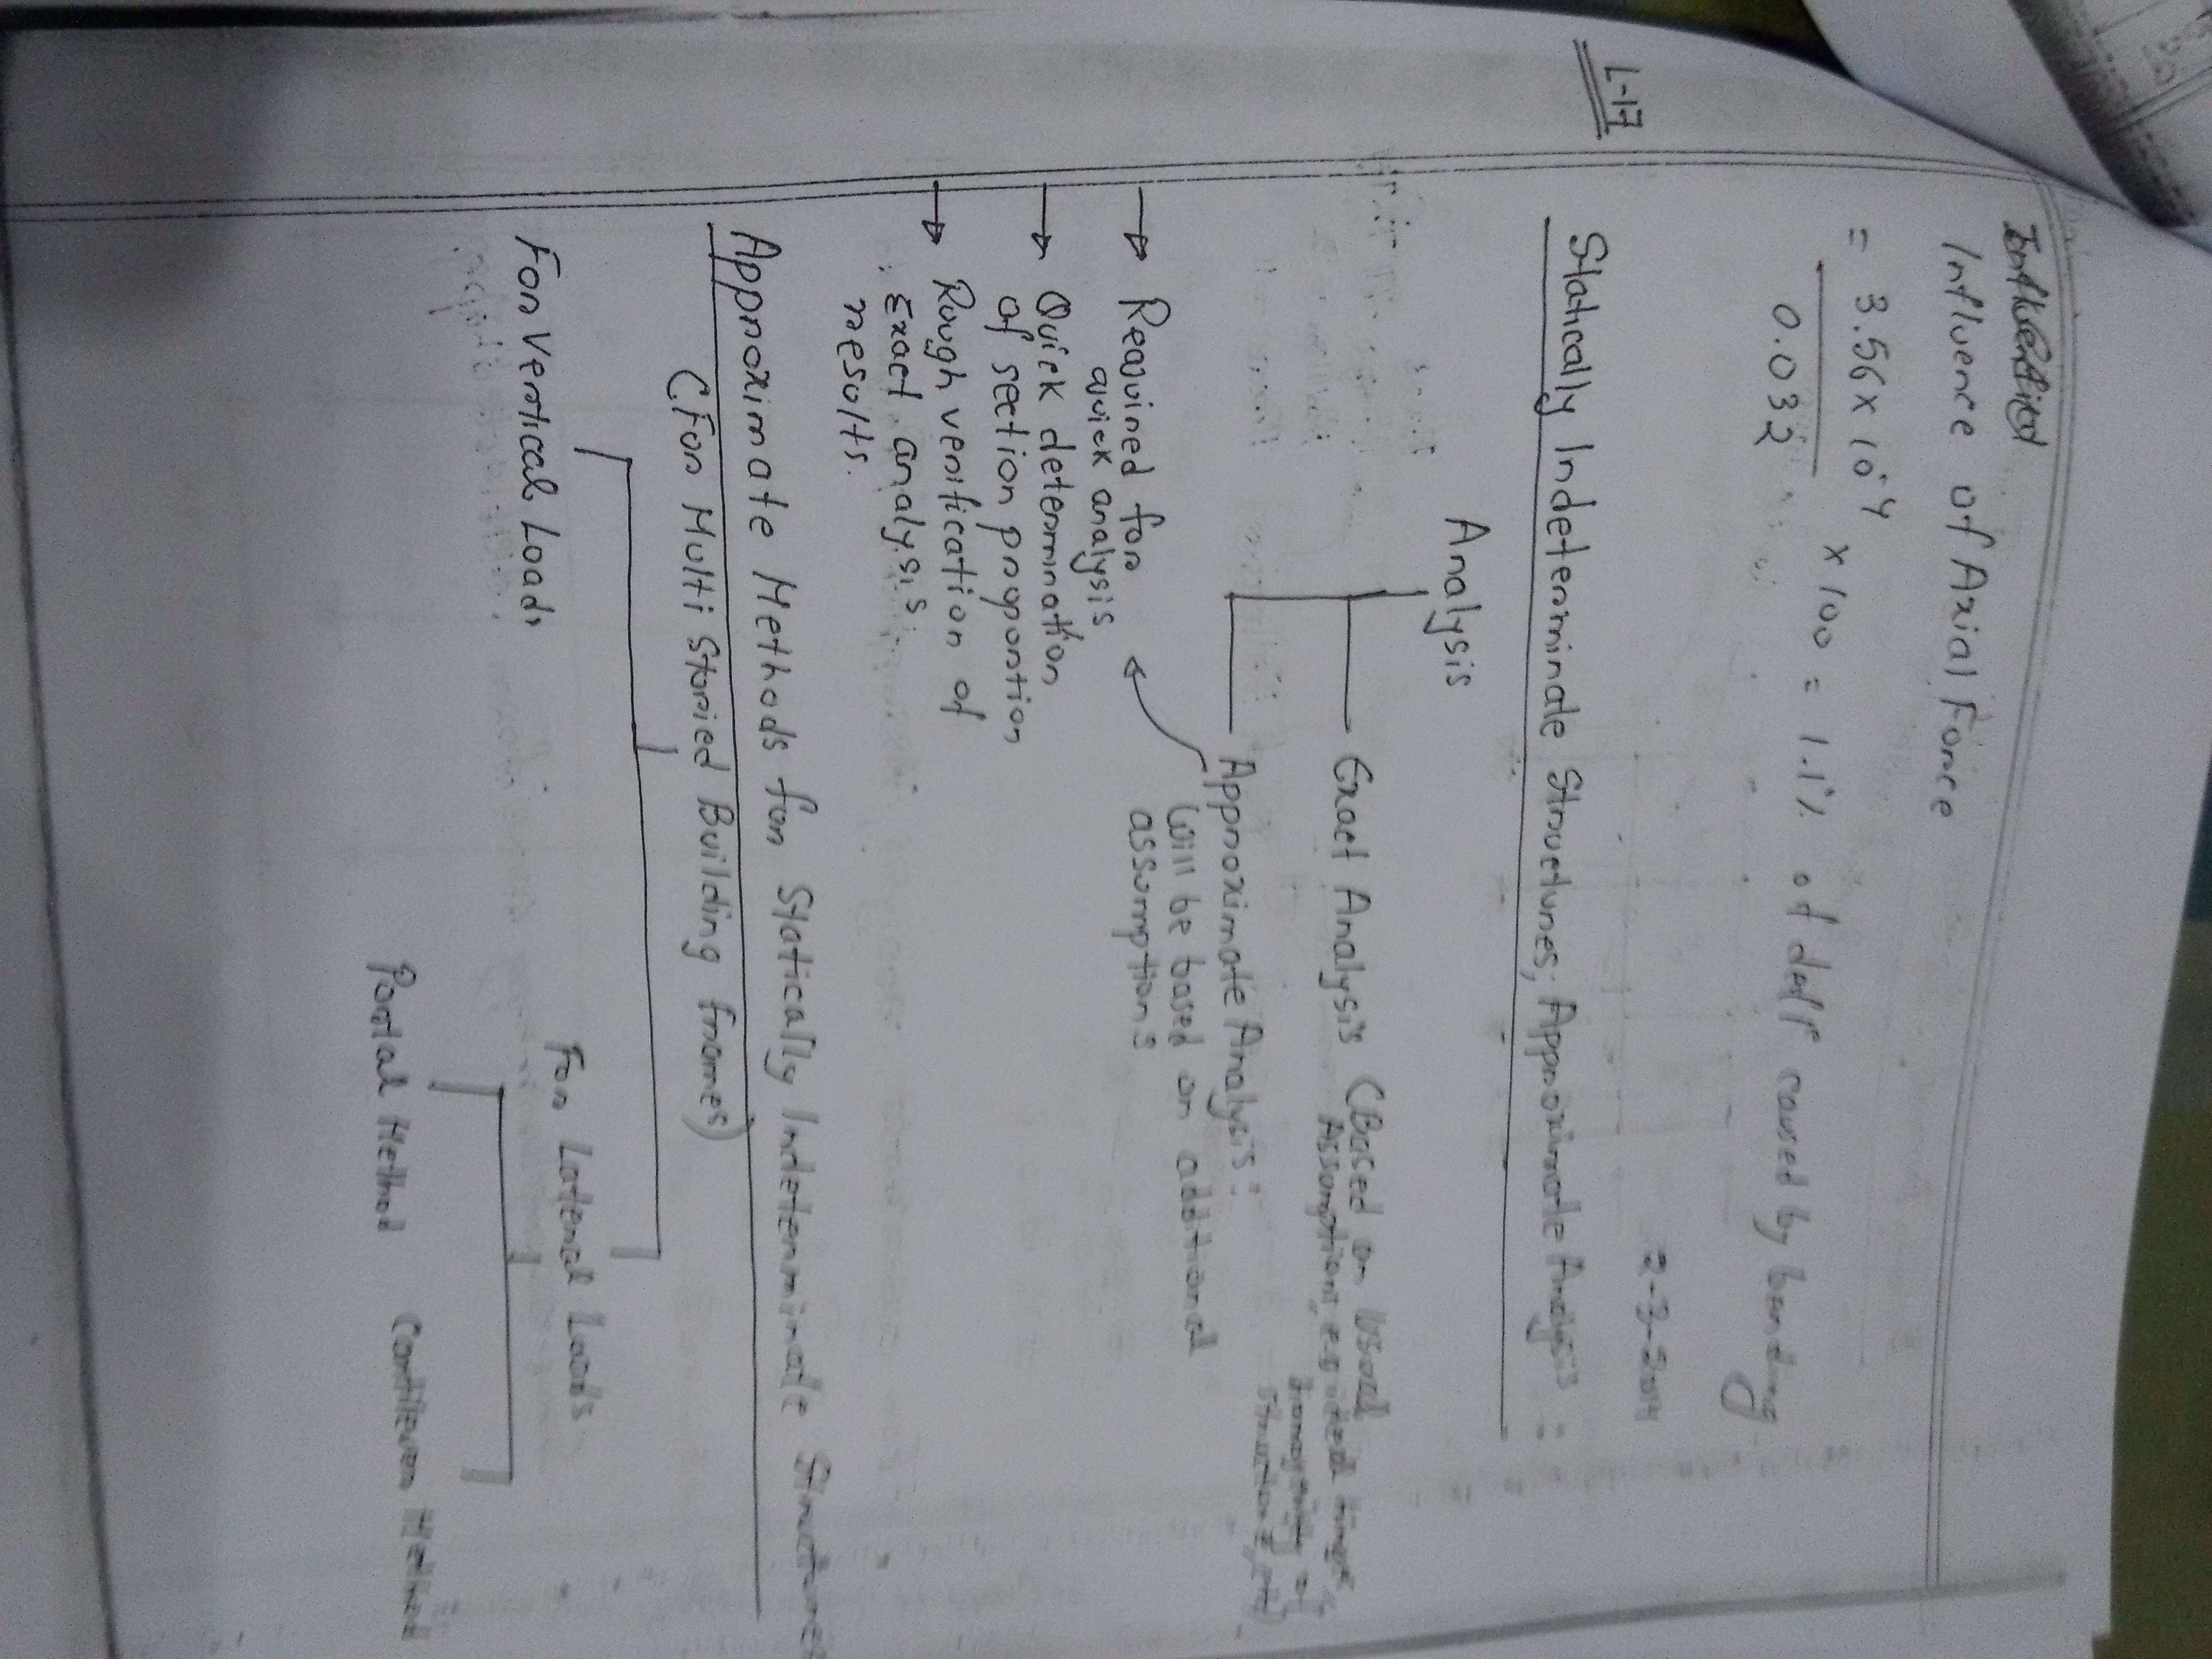 Influence of Axial Force
= 3.56 x 10^-4 / 0.032 x 100 = 1.1% of defln caused by bending
2-3-2014
L-17
Statically Indeterminate Structures; Approximate Analysis :-
Analysis
Exact Analysis (Based on usual
Assumptions, eg ideal hinge,
homogeneity of
structions, etc)
Approximate Analysis :-
Will be based on additional
assumptions
→ Required for
quick analysis
→ Quick determination
of section proportion
→ Rough verification of
Exact analysis
results.
Approximate Methods for Statically Indeterminate Structures
(For Multi Storied Building frames)
For Vertical Loads
For Lateral Loads
Portal Method
Cantilever Method